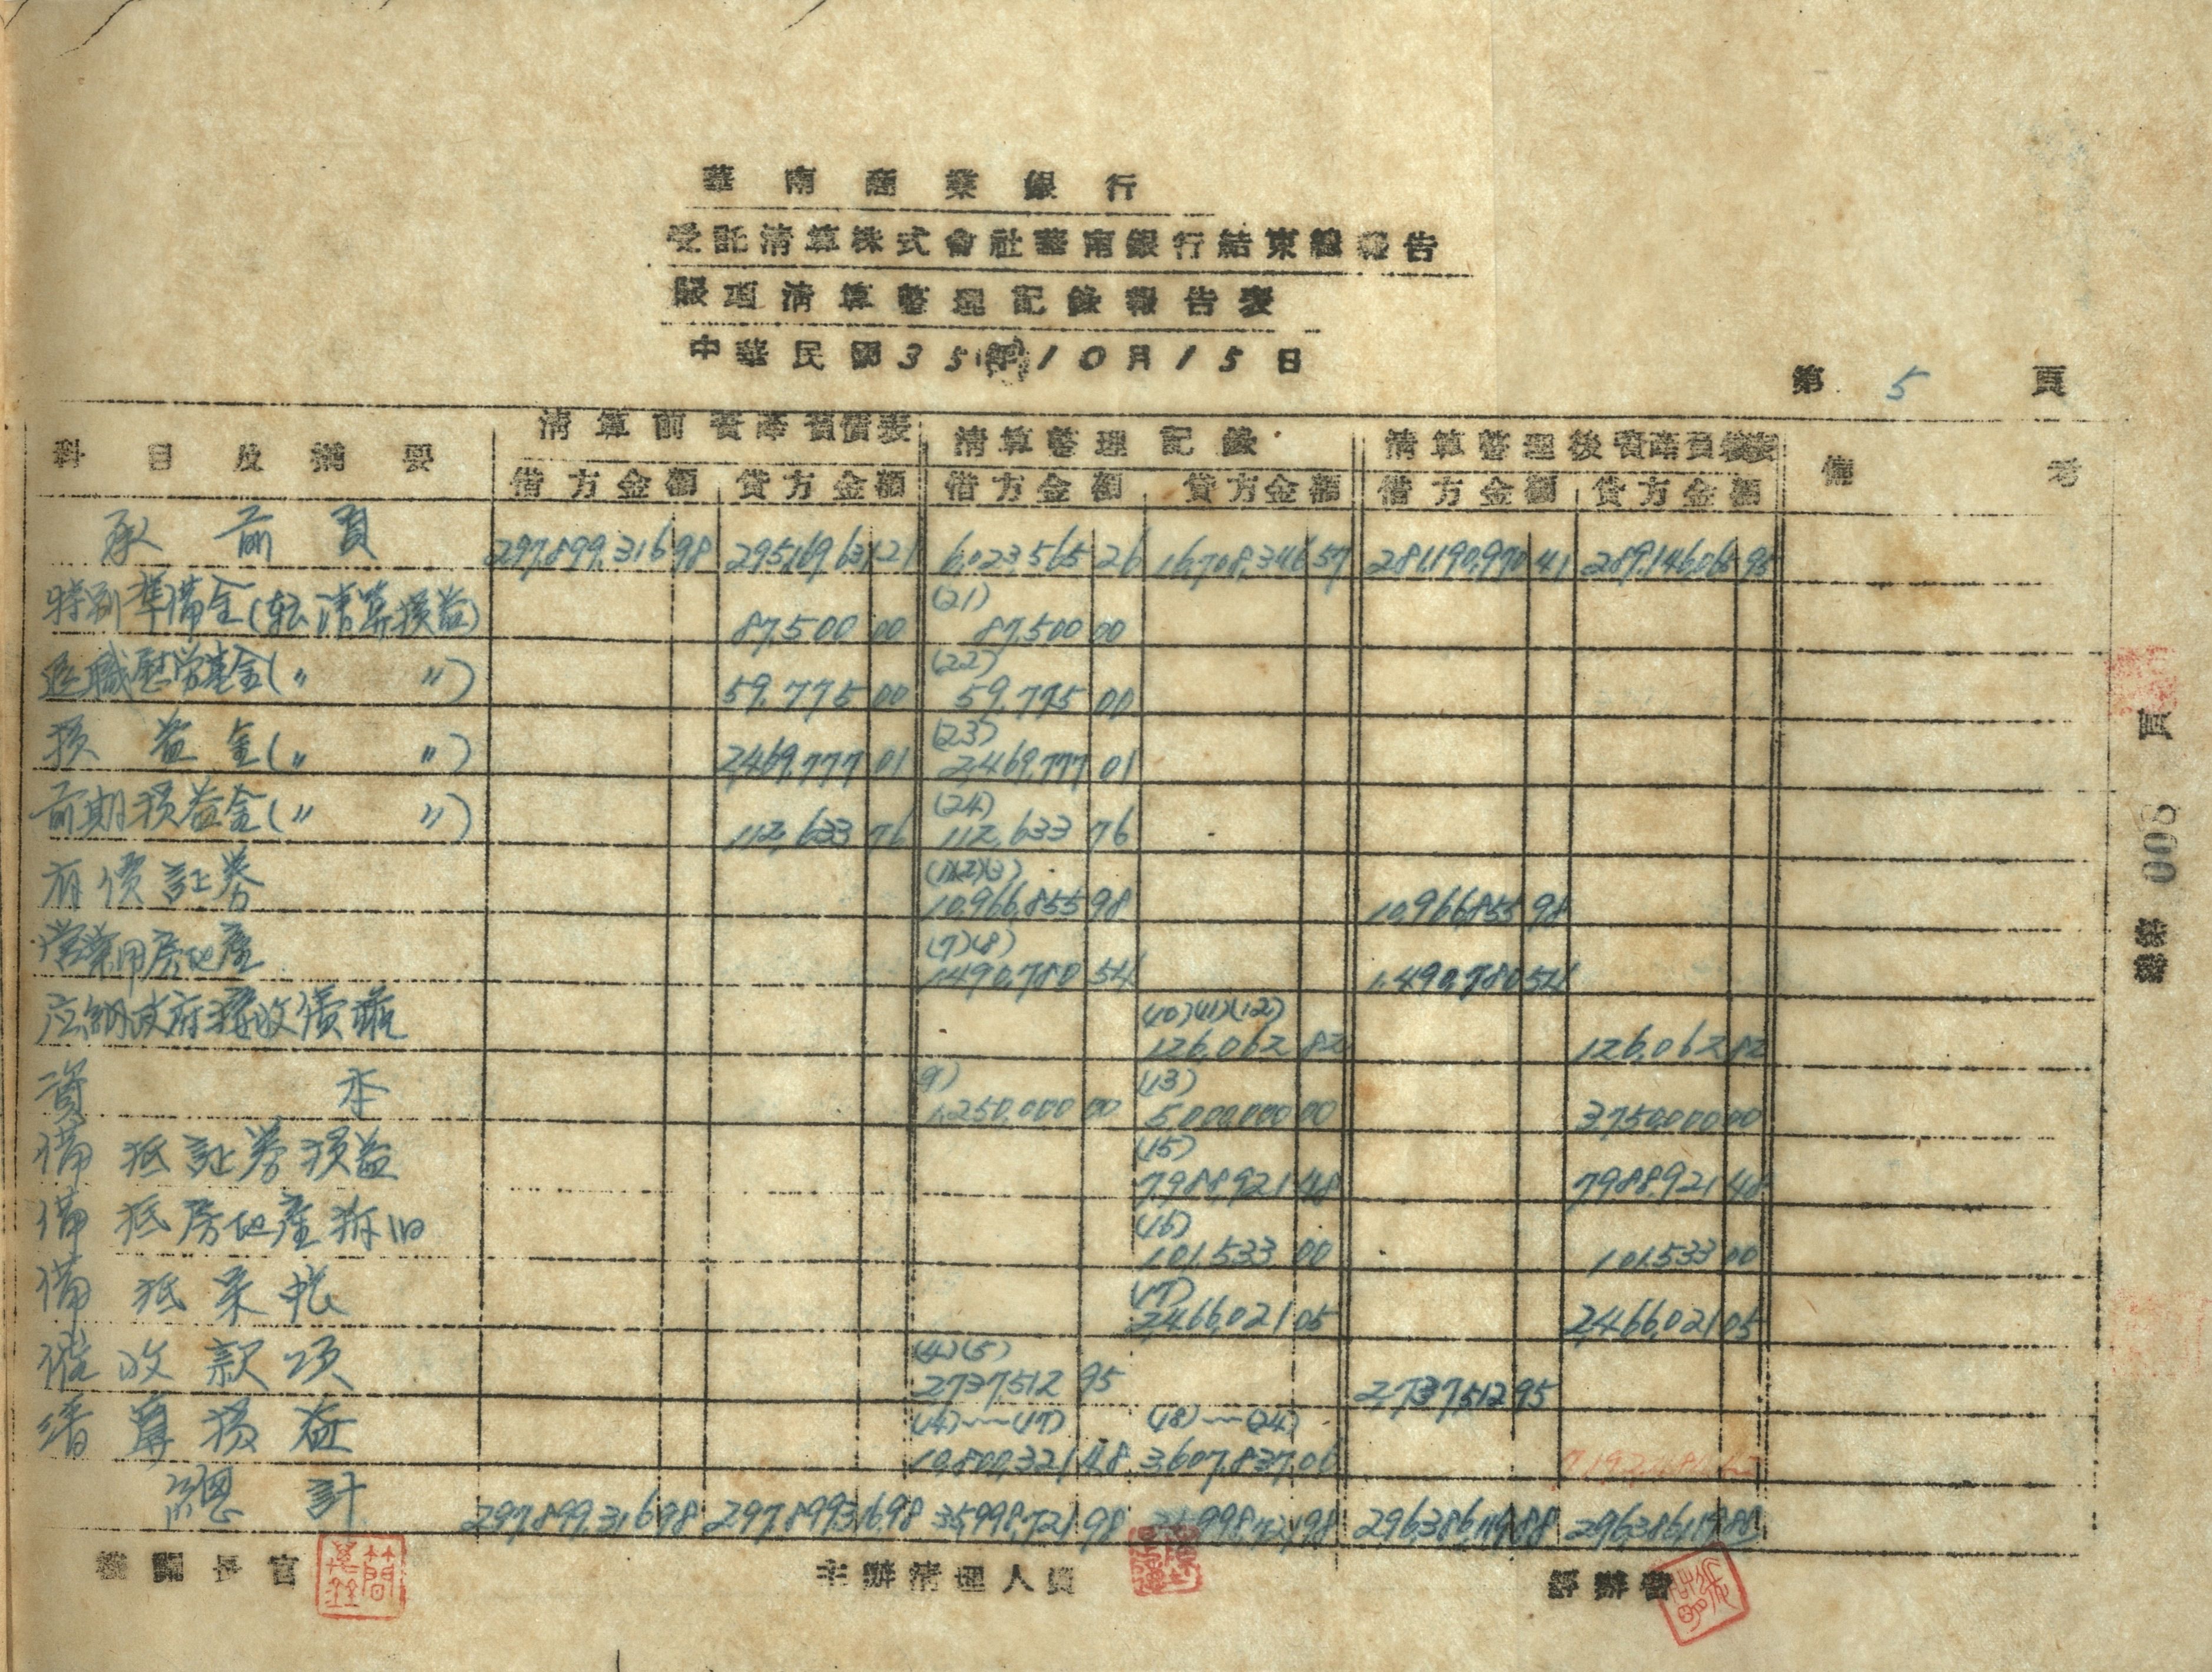 華南商業銀行
受託清算株式會社華南銀行結束總報告
賬項清算整理記錄報告表
中華民國35年10月15日
第 5 頁
科目及摘要 清算前資產負債表 清算整理記錄 清算整理後資產負債表 備考
借方金額 貸方金額 借方金額 貸方金額 借方金額 貸方金額
承前頁 297,899,316 98 295,169,631 21 6,023,565 26 16,708,346 57 281,190,970 41 289,146,065 95
特別準備金(転清算損益) 87,500 00 (21) 87,500 00
退職慰労基金(〃 〃) 59,775 00 (22) 59,775 00
損益金(〃 〃) 2,469,777 01 (23) 2,469,777 01
前期損益金(〃 〃) 112,633 76 (24) 112,633 76
有價証券 (1)(2)(3) 10,966,855 98 10,966,855 98
営業用房地産 (7)(8) 1,490,780 54 1,490,780 54
应納政府接收價款 (10)(11)(12) 126,062 82 126,062 82
資本 (9) 1,250,000 00 (13) 5,000,000 00 3,750,000 00
備抵証券損益 (15) 7,988,921 48 7,988,921 48
備抵房地産折旧 (16) 101,533 00 101,533 00
備抵呆帳 (17) 2,466,021 05 2,466,021 05
催收款項 (4)(5) 2,737,512 95 2,737,512 95
清算損益 (14)~~(17) 10,800,321 48 (18)~~(24) 3,607,837 06
總計 297,899,316 98 297,899,316 98 35,998,721 98 35,998,721 98 296,386,119 88 296,386,119 88
機關長官 主辦清理人員 經辦員
頁
008